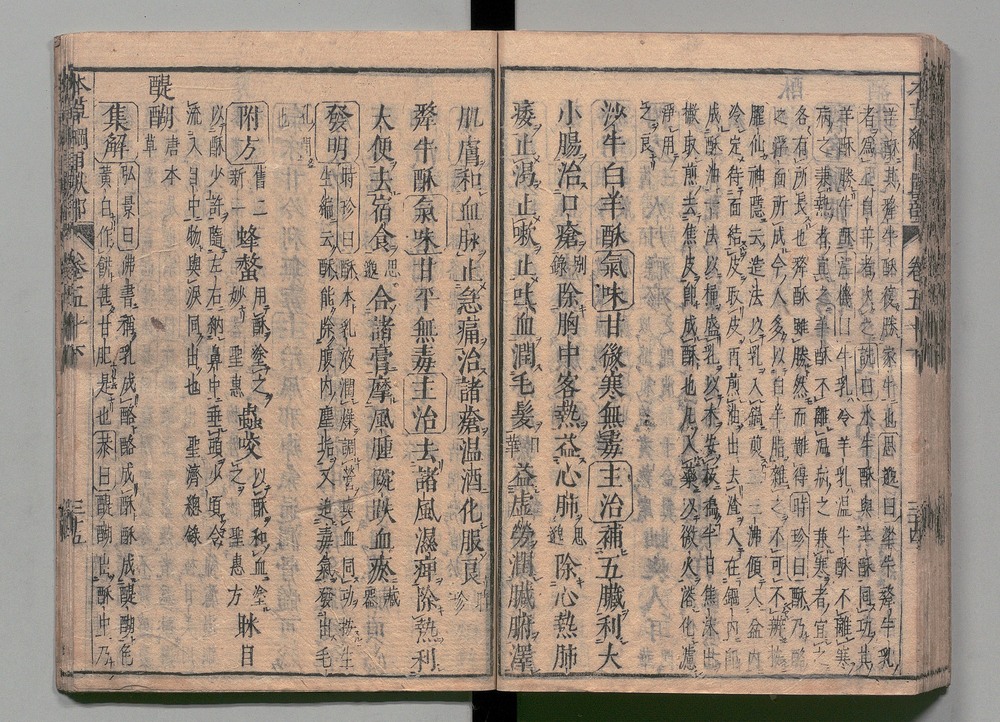 者爲上白羊者次之詵曰水牛酥與羊酥同功其
羊酥勝牛酥宗奭曰牛乳冷羊乳溫牛酥不離寒
病之兼熱者宜之羊酥不離溫病之兼寒者宜
各有所長也犛酥雖勝然而難得時珍曰酥乃酪
之浮所成今人多以白羊脂雜之不可不辨
臞仙神隱云造法以乳入鍋煎二三沸傾入盆內
冷定待面結皮取皮再煎油出去渣入在鍋內
成酥油一法以桶盛乳以木安板搗半日焦沫出
撇取煎去焦皮卽成酥也凡入藥以微火溶化濾
淨用之良
沙牛白羊酥氣味甘微寒無毒主治補五臟利大
小腸治口瘡別錄除胸中客熱益心肺思邈除心熱肺
痿止渴止嗽止吐血潤毛髮日華益虛勞潤臟腑澤
肌膚和血脉止急痛治諸瘡溫酒化服良時珍
犛牛酥氣味甘平無毒主治去諸風濕痺除熱利
大便去宿食思邈合諸膏摩風腫踠跌血瘀藏器
發明時珍曰酥本乳液潤燥調營與血同功按生
生編云酥能除腹內塵垢又追毒氣發出毛
孔間也
附方舊二新一蜂螫用酥塗之妙聖惠蟲咬以酥和血塗之聖惠方眯目
以酥少許隨左右納鼻中垂頭少頃令
流入目中物與淚同出也聖濟總錄
醍醐唐本草
集解弘景曰佛書稱乳成酪酪成酥酥成醍醐色
黃白作餅甚甘肥是也恭曰醍醐出酥中乃
本草綱目獸部
卷五十下
三十五